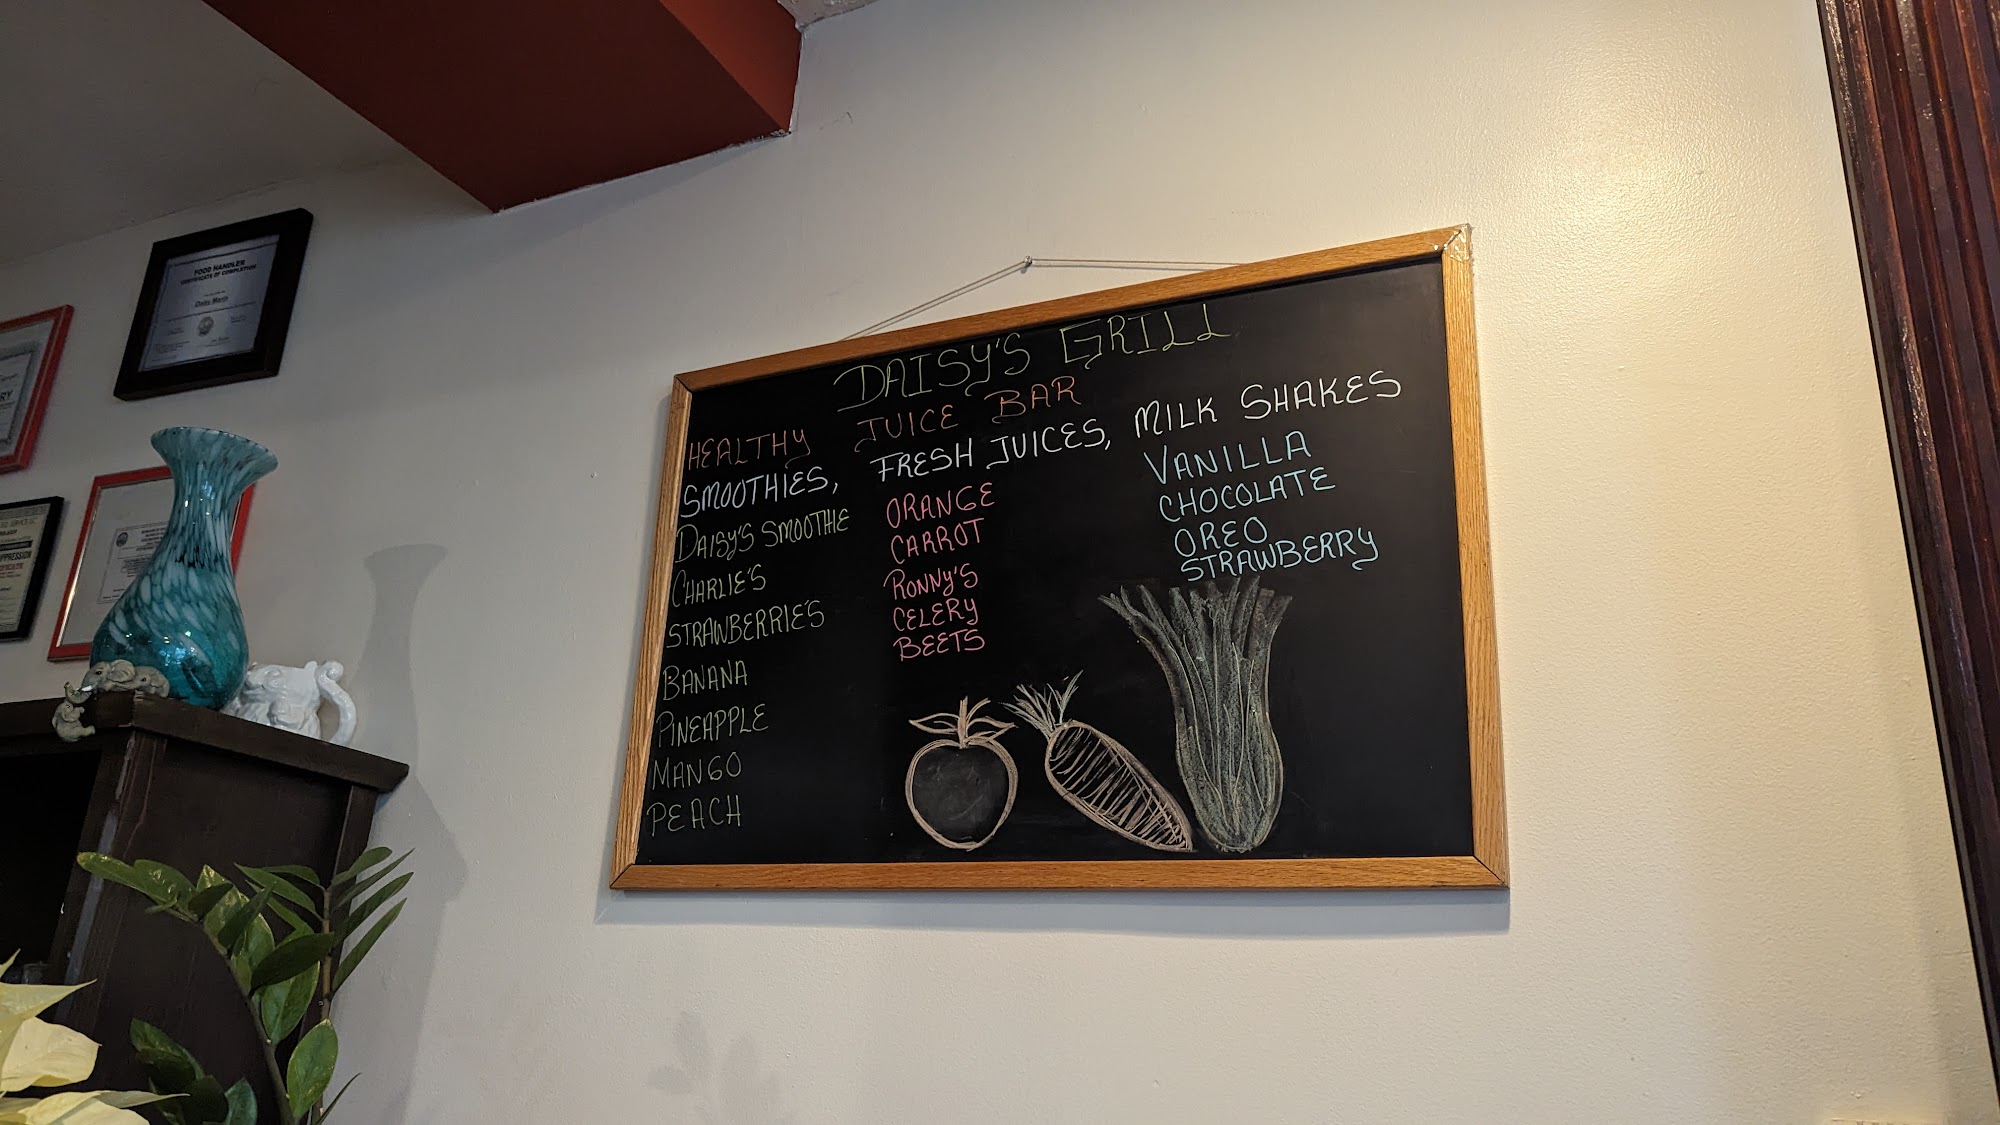 DAISY'S GRILL
HEALTHY JUICE BAR
SMOOTHIES, FRESH JUICES, MILK SHAKES
DAISY'S SMOOTHIE
CHARLIE'S
STRAWBERRIE'S
BANANA
PINEAPPLE
MANGO
PEACH
ORANGE
CARROT
RONNY'S
CELERY
BEETS
VANILLA
CHOCOLATE
OREO
STRAWBERRY
FOOD HANDLER
CERTIFICATE OF COMPLETION